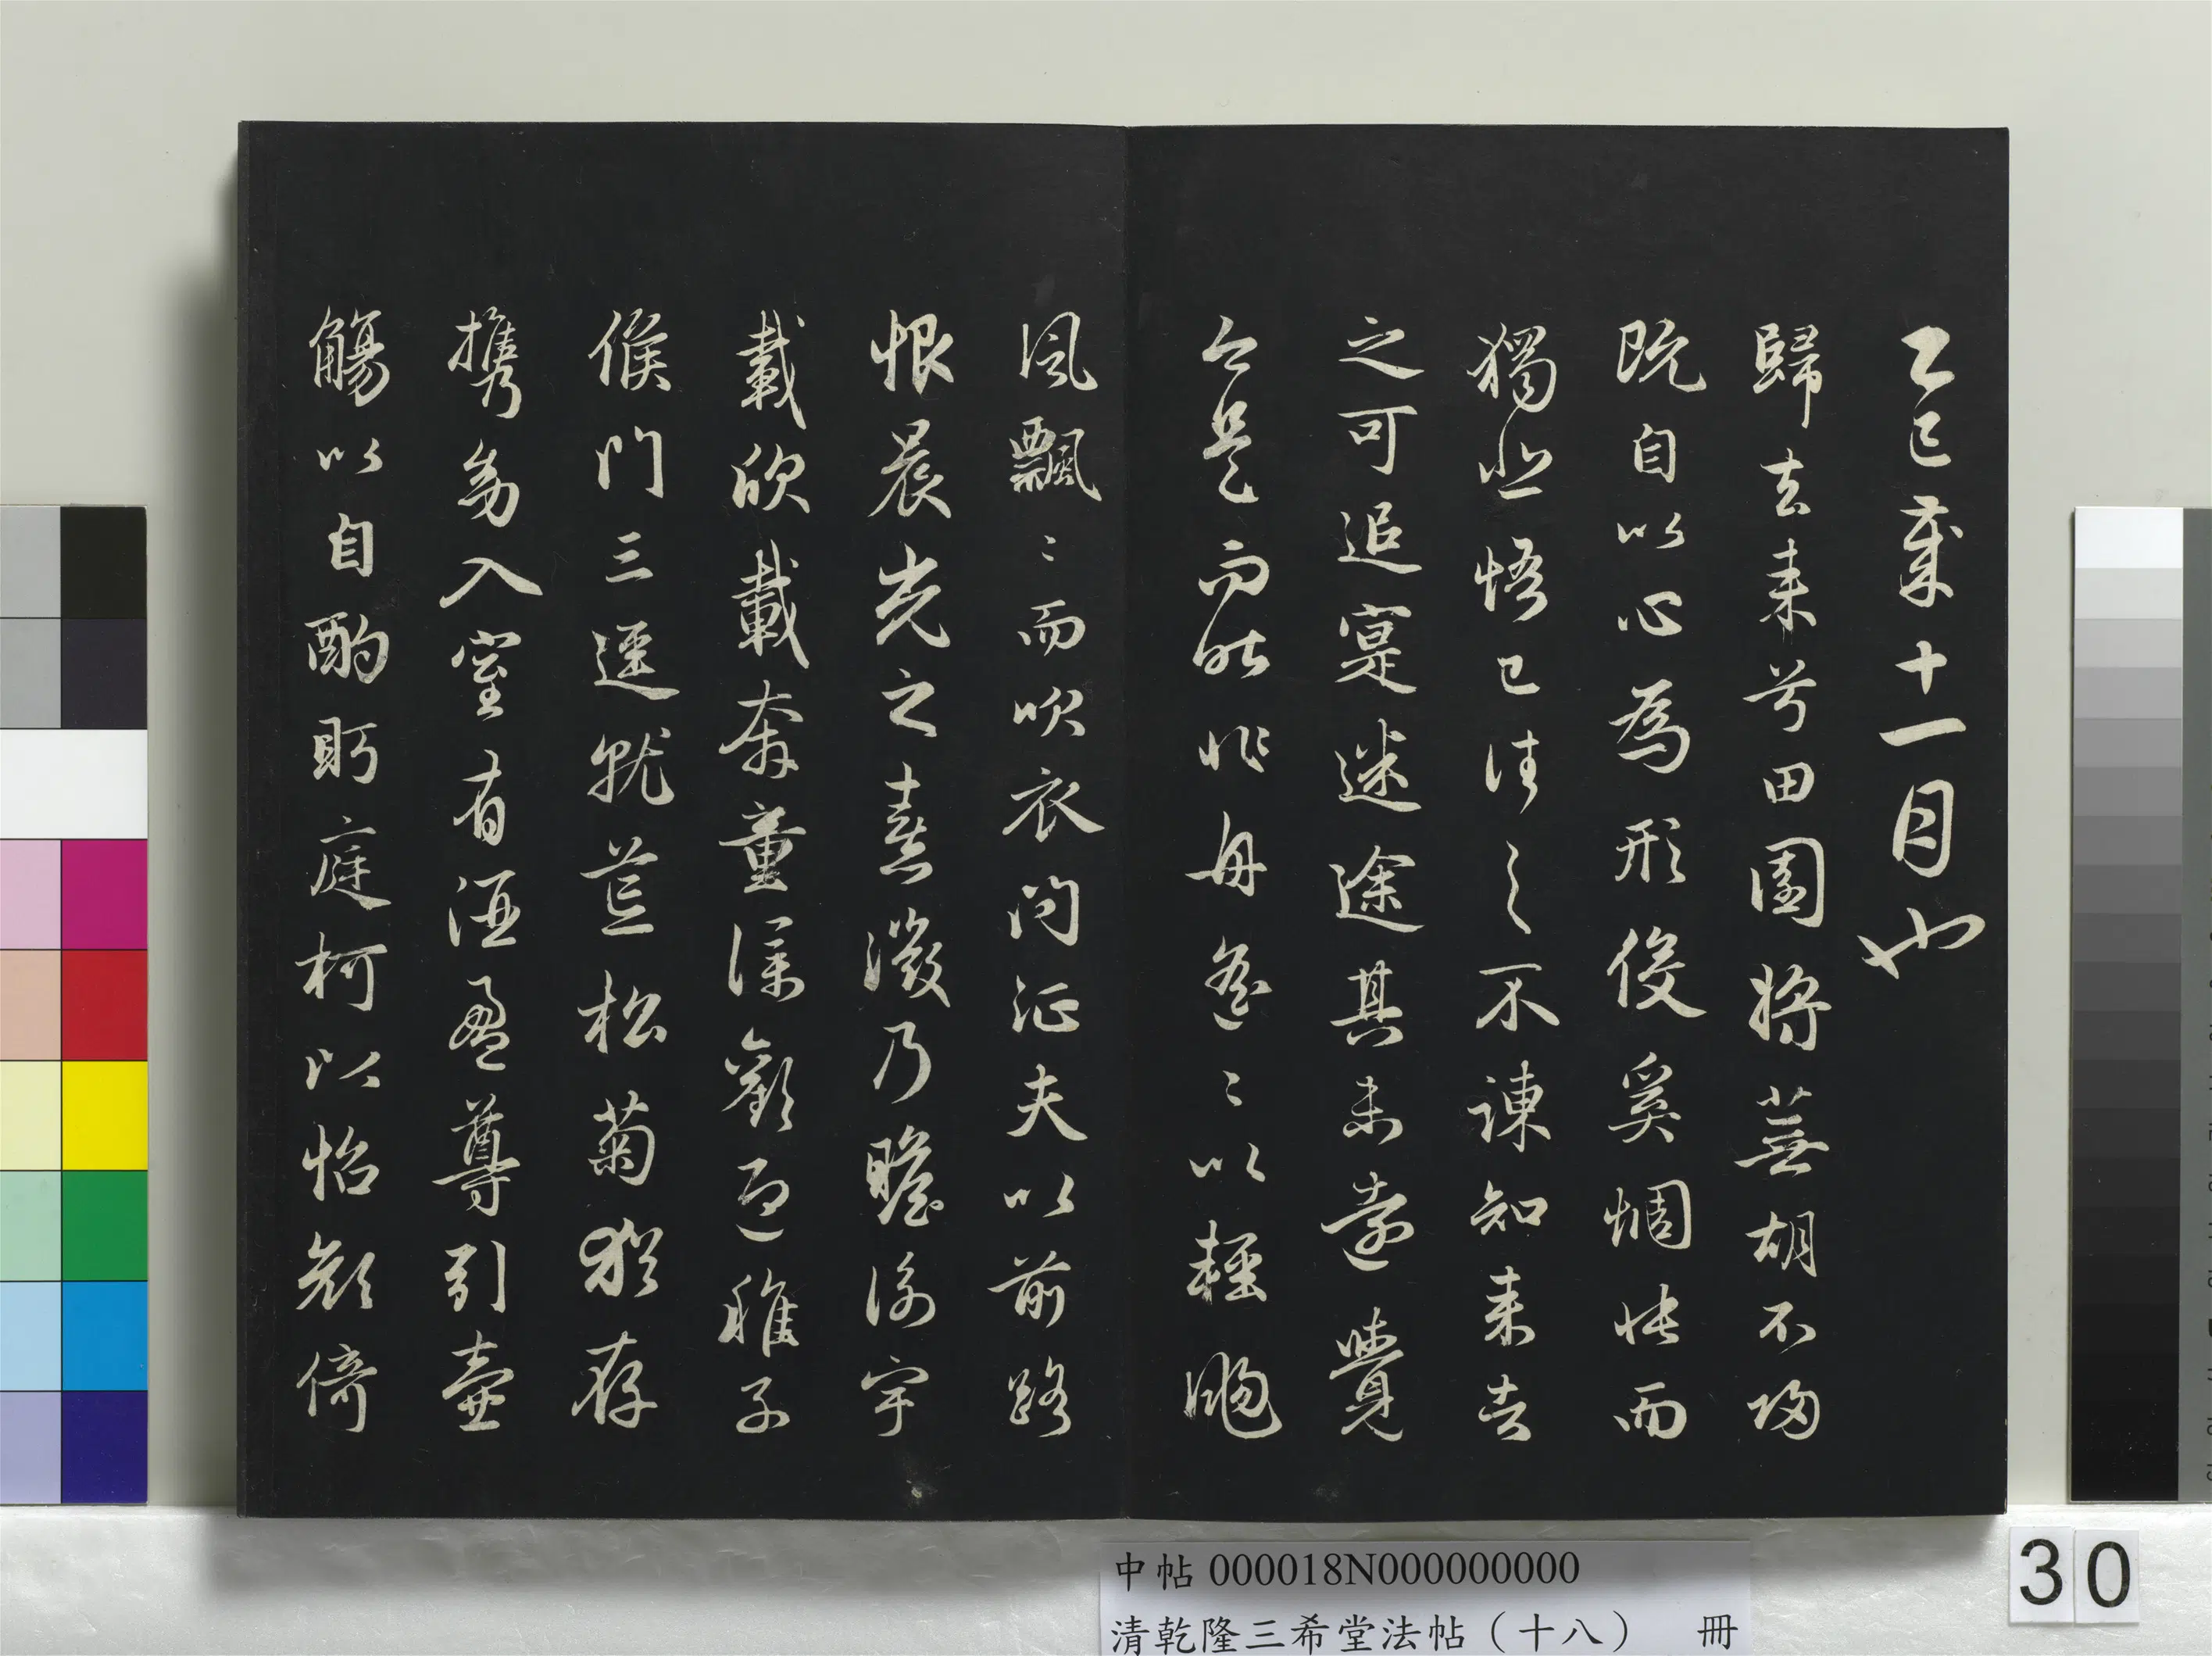 乙巳歲十一月也
歸去来兮田園將蕪胡不歸
既自以心為形役奚惆悵而
獨悲悟已往之不諫知来者
之可追寔迷途其未遠覺
今是而昨非舟遙〻以輕颺
風飄〻而吹衣問征夫以前路
恨晨光之熹微乃瞻衡宇
載欣載奔童僕歡迎稚子
候門三逕就荒松菊猶存
携幼入室有酒盈尊引壺
觴以自酌眄庭柯以怡顏倚
中帖 000018N000000000
清乾隆三希堂法帖（十八） 冊
30